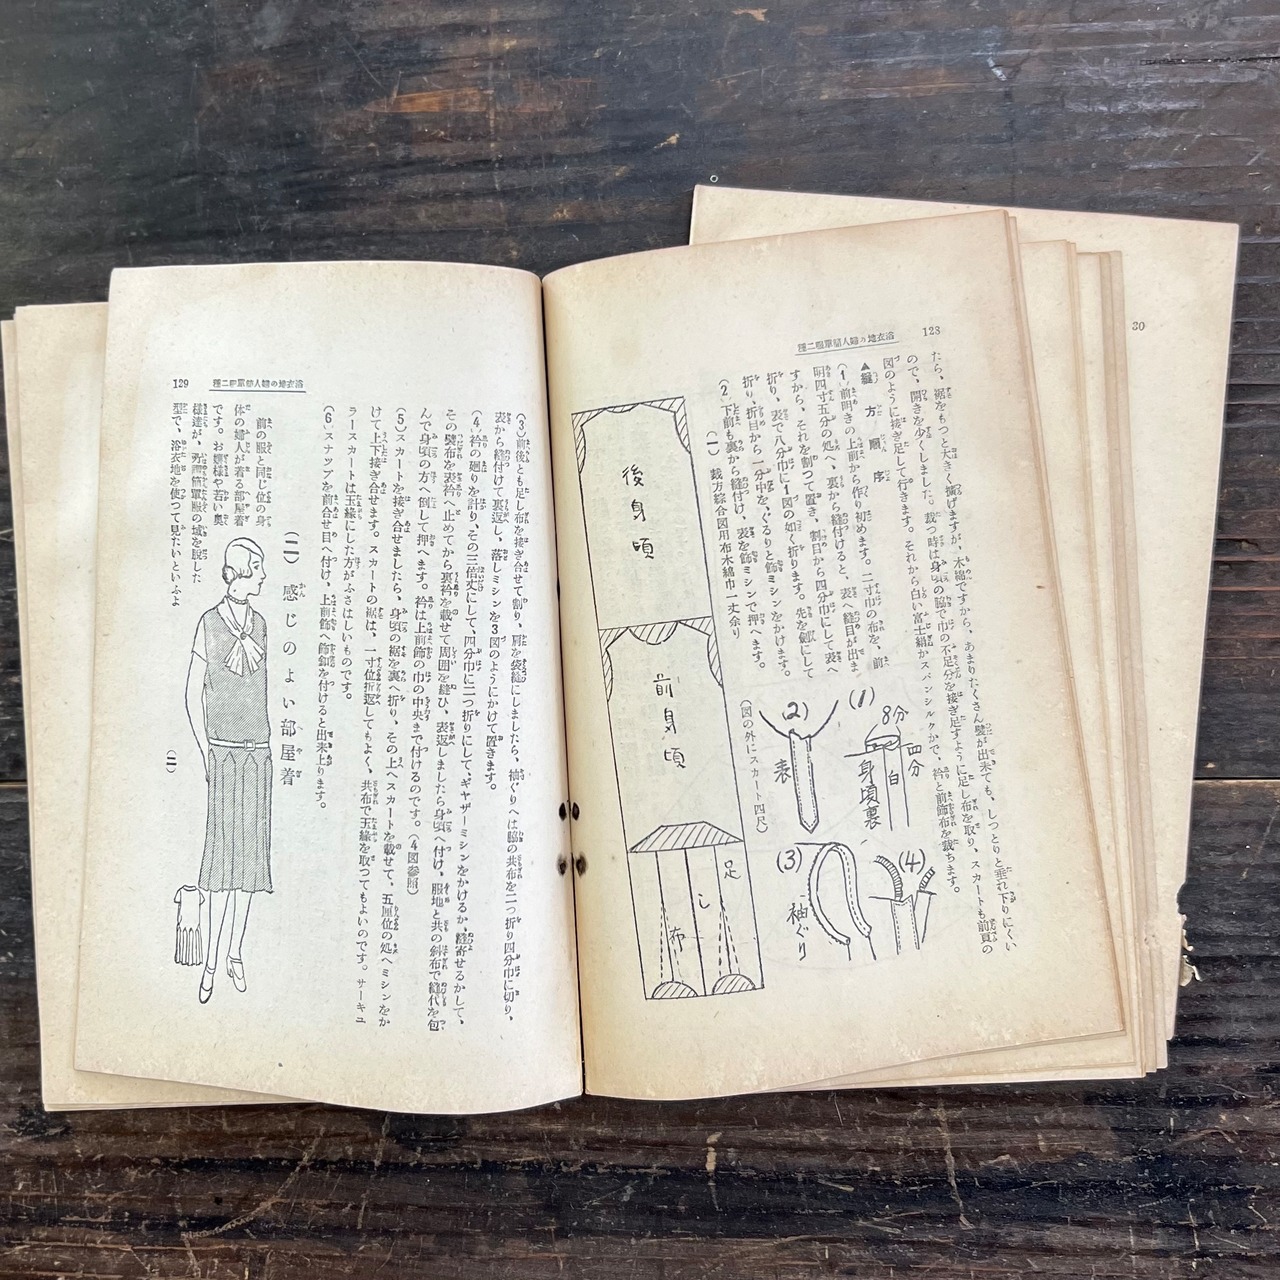 128
浴衣地の婦人簡單服二種
たら、裾をもつと大きく擴げますが、木綿ですから、あまりたくさん襞が出來ても、しつとりと垂れ下りにくい
ので、開きを少くしました。裁つ時は身頃の脇で巾の不足分を接ぎ足すように足し布を取り、スカートも前頁の
図のように接ぎ足して行きます。それから白い富士絹かスパンシルクかで、衿と前飾布を裁ちます。
▲縫方順序
(1)前明きの上前から作り初めます。二寸巾の布を、前
明四寸五分の処へ、裏から縫付けると、表へ縫目が出ま
すから、それを割つて置き、割目から四分巾にして表へ
折り、表で八分巾に1図の如く折ります。先を劍にして
折り、折目から一分中を、ぐるりと飾ミシンをかけます。
(2)下前も裏から縫付け、表を飾ミシンで押へます。
(一)裁方綜合図用布木綿巾一丈余り
後身頃
前身頃
足し布
(図の外にスカート四尺)
(1)
8分
四分
白
身頃裏
(2)
表
(3)
袖ぐり
(4)
(3)前後とも足し布を接ぎ合せて割り、肩を袋縫にしましたら、袖ぐりへは脇の共布を二つ折り四分巾に切り、
表から縫付けて裏返し、落しミシンを3図のようにかけて置きます。
(4)衿の廻りを計り、その二倍丈にして、四分巾に二つ折りにして、ギャザーミシンをかけるか、縫寄せるかして、
その襞布を表衿へ止めてから裏衿を載せて周囲を縫ひ、表返しましたら身頃へ付け、服地と共の斜布で縫代を包
んで身頃の方へ倒して押へます。衿は上前飾の巾の中央まで付けるのです。(4図参照)
(5)スカートを接ぎ合せましたら、身頃の裾を裏へ折り、その上へスカートを載せて、五厘位の処へミシンをか
けて上下接ぎ合せます。スカートの裾は、一寸位折返してもよく、共布で玉縁を取つてもよいのです。サーキユ
ラースカートは玉縁にした方がふさはしいものです。
(6)スナツプを前合せ目へ付け、上前飾へ飾釦を付けると出来上ります。
(二)感じのよい部屋着
前の服と同じ位の身
体の婦人が着る部屋着
です。お嬢様や若い奥
様達が、所謂簡單服の域を脱した
型で、浴衣地を使つて見たいといふよ
(二)
浴衣地の婦人簡單服二種
129
30